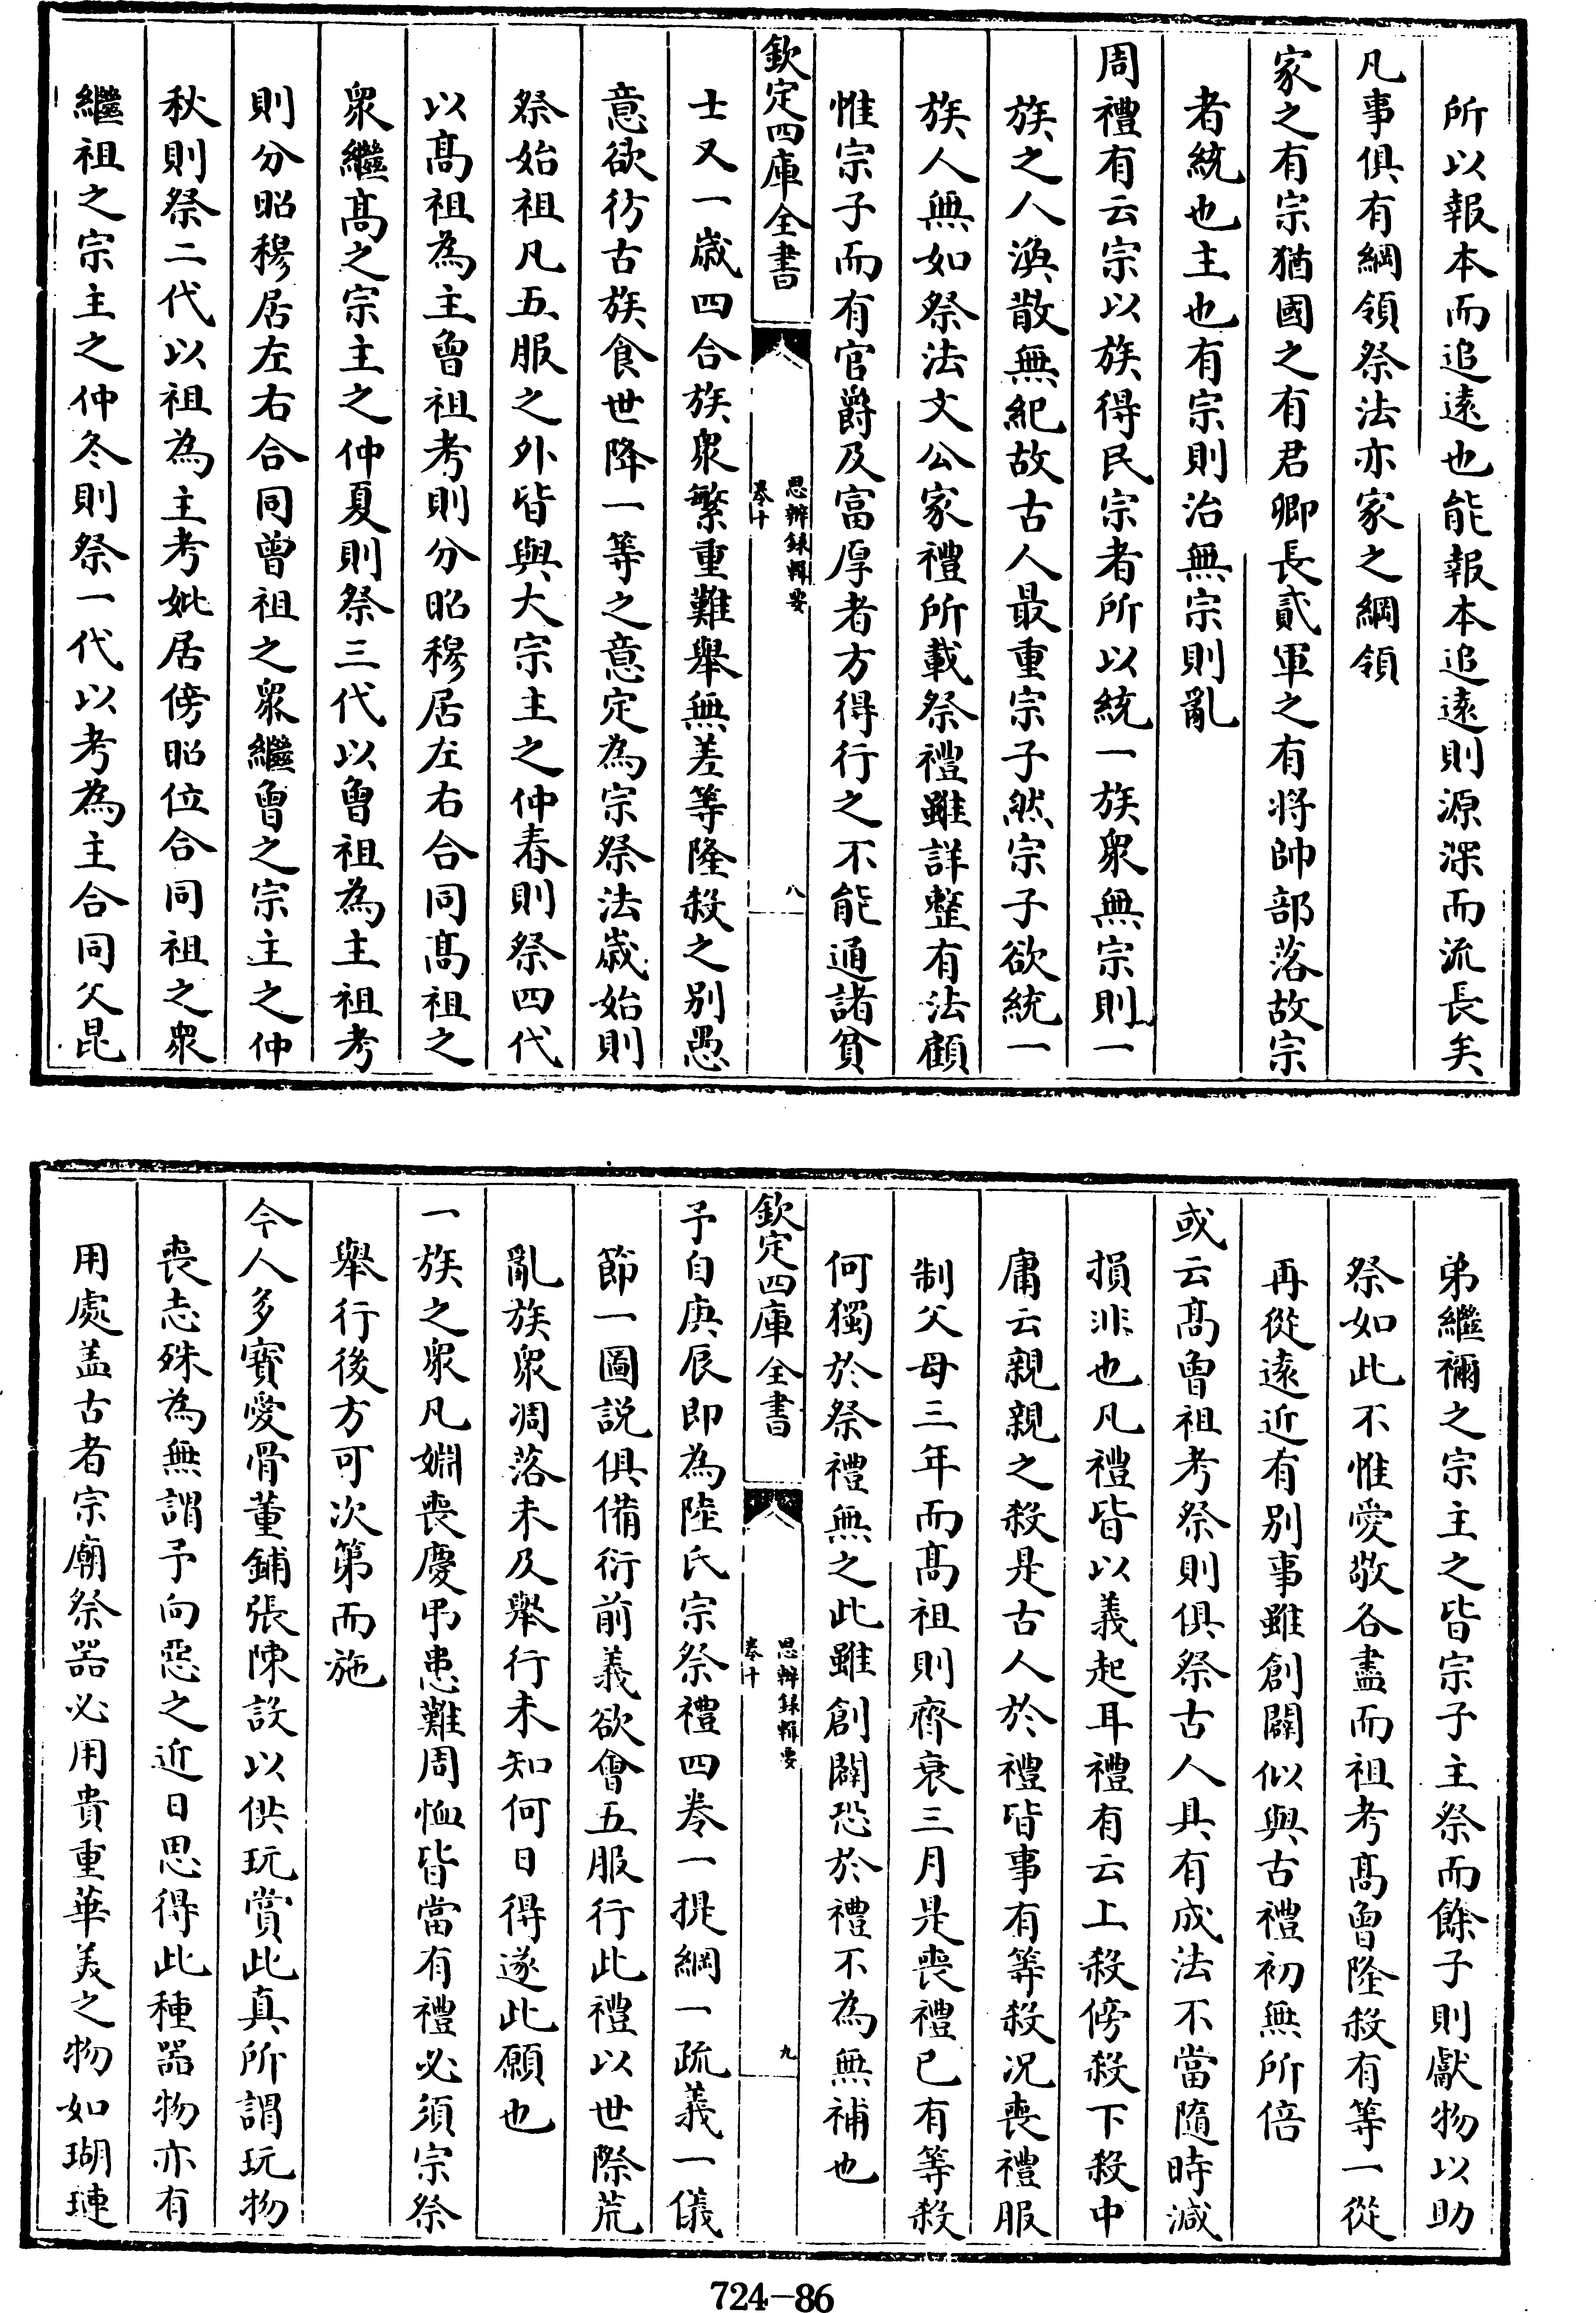 所以報本而追遠也能報本追遠則源深而流長矣
凡事俱有綱領祭法亦家之綱領
家之有宗猶國之有君卿長貳軍之有将帥部落故宗
者統也主也有宗則治無宗則亂
周禮有云宗以族得民宗者所以統一族衆無宗則一
族之人渙散無紀故古人最重宗子然宗子欲統一
族人無如祭法文公家禮所載祭禮雖詳整有法顧
惟宗子而有官爵及富厚者方得行之不能通諸貧
欽定四庫全書
思辨録輯要
卷十
八
士又一嵗四合族衆繁重難舉無差等隆殺之别愚
意欲彷古族食世降一等之意定為宗祭法嵗始則
祭始祖凡五服之外皆與大宗主之仲春則祭四代
以髙祖為主曾祖考則分昭穆居左右合同髙祖之
衆繼髙之宗主之仲夏則祭三代以曾祖為主祖考
則分昭穆居左右合同曾祖之衆繼曾之宗主之仲
秋則祭二代以祖為主考妣居傍昭位合同祖之衆
繼祖之宗主之仲冬則祭一代以考為主合同父昆
弟繼禰之宗主之皆宗子主祭而餘子則獻物以助
祭如此不惟愛敬各盡而祖考髙曾隆殺有等一從
再從遠近有别事雖創闢似與古禮初無所倍
或云髙曾祖考祭則俱祭古人具有成法不當隨時減
損非也凡禮皆以義起耳禮有云上殺傍殺下殺中
庸云親親之殺是古人於禮皆事有等殺况喪禮服
制父母三年而髙祖則齊衰三月是喪禮已有等殺
何獨於祭禮無之此雖創闢恐於禮不為無補也
欽定四庫全書
思辨録輯要
卷十
九
予自庚辰即為陸氏宗祭禮四卷一提綱一疏義一儀
節一圖説俱備衍前義欲㑹五服行此禮以世際荒
亂族衆凋落未及舉行未知何日得遂此願也
一族之衆凡婣喪慶弔患難周恤皆當有禮必須宗祭
舉行後方可次第而施
今人多寳愛骨董鋪張陳設以供玩賞此真所謂玩物
喪志殊為無謂予向惡之近日思得此種器物亦有
用處盖古者宗廟祭器必用貴重華美之物如瑚璉
724-86